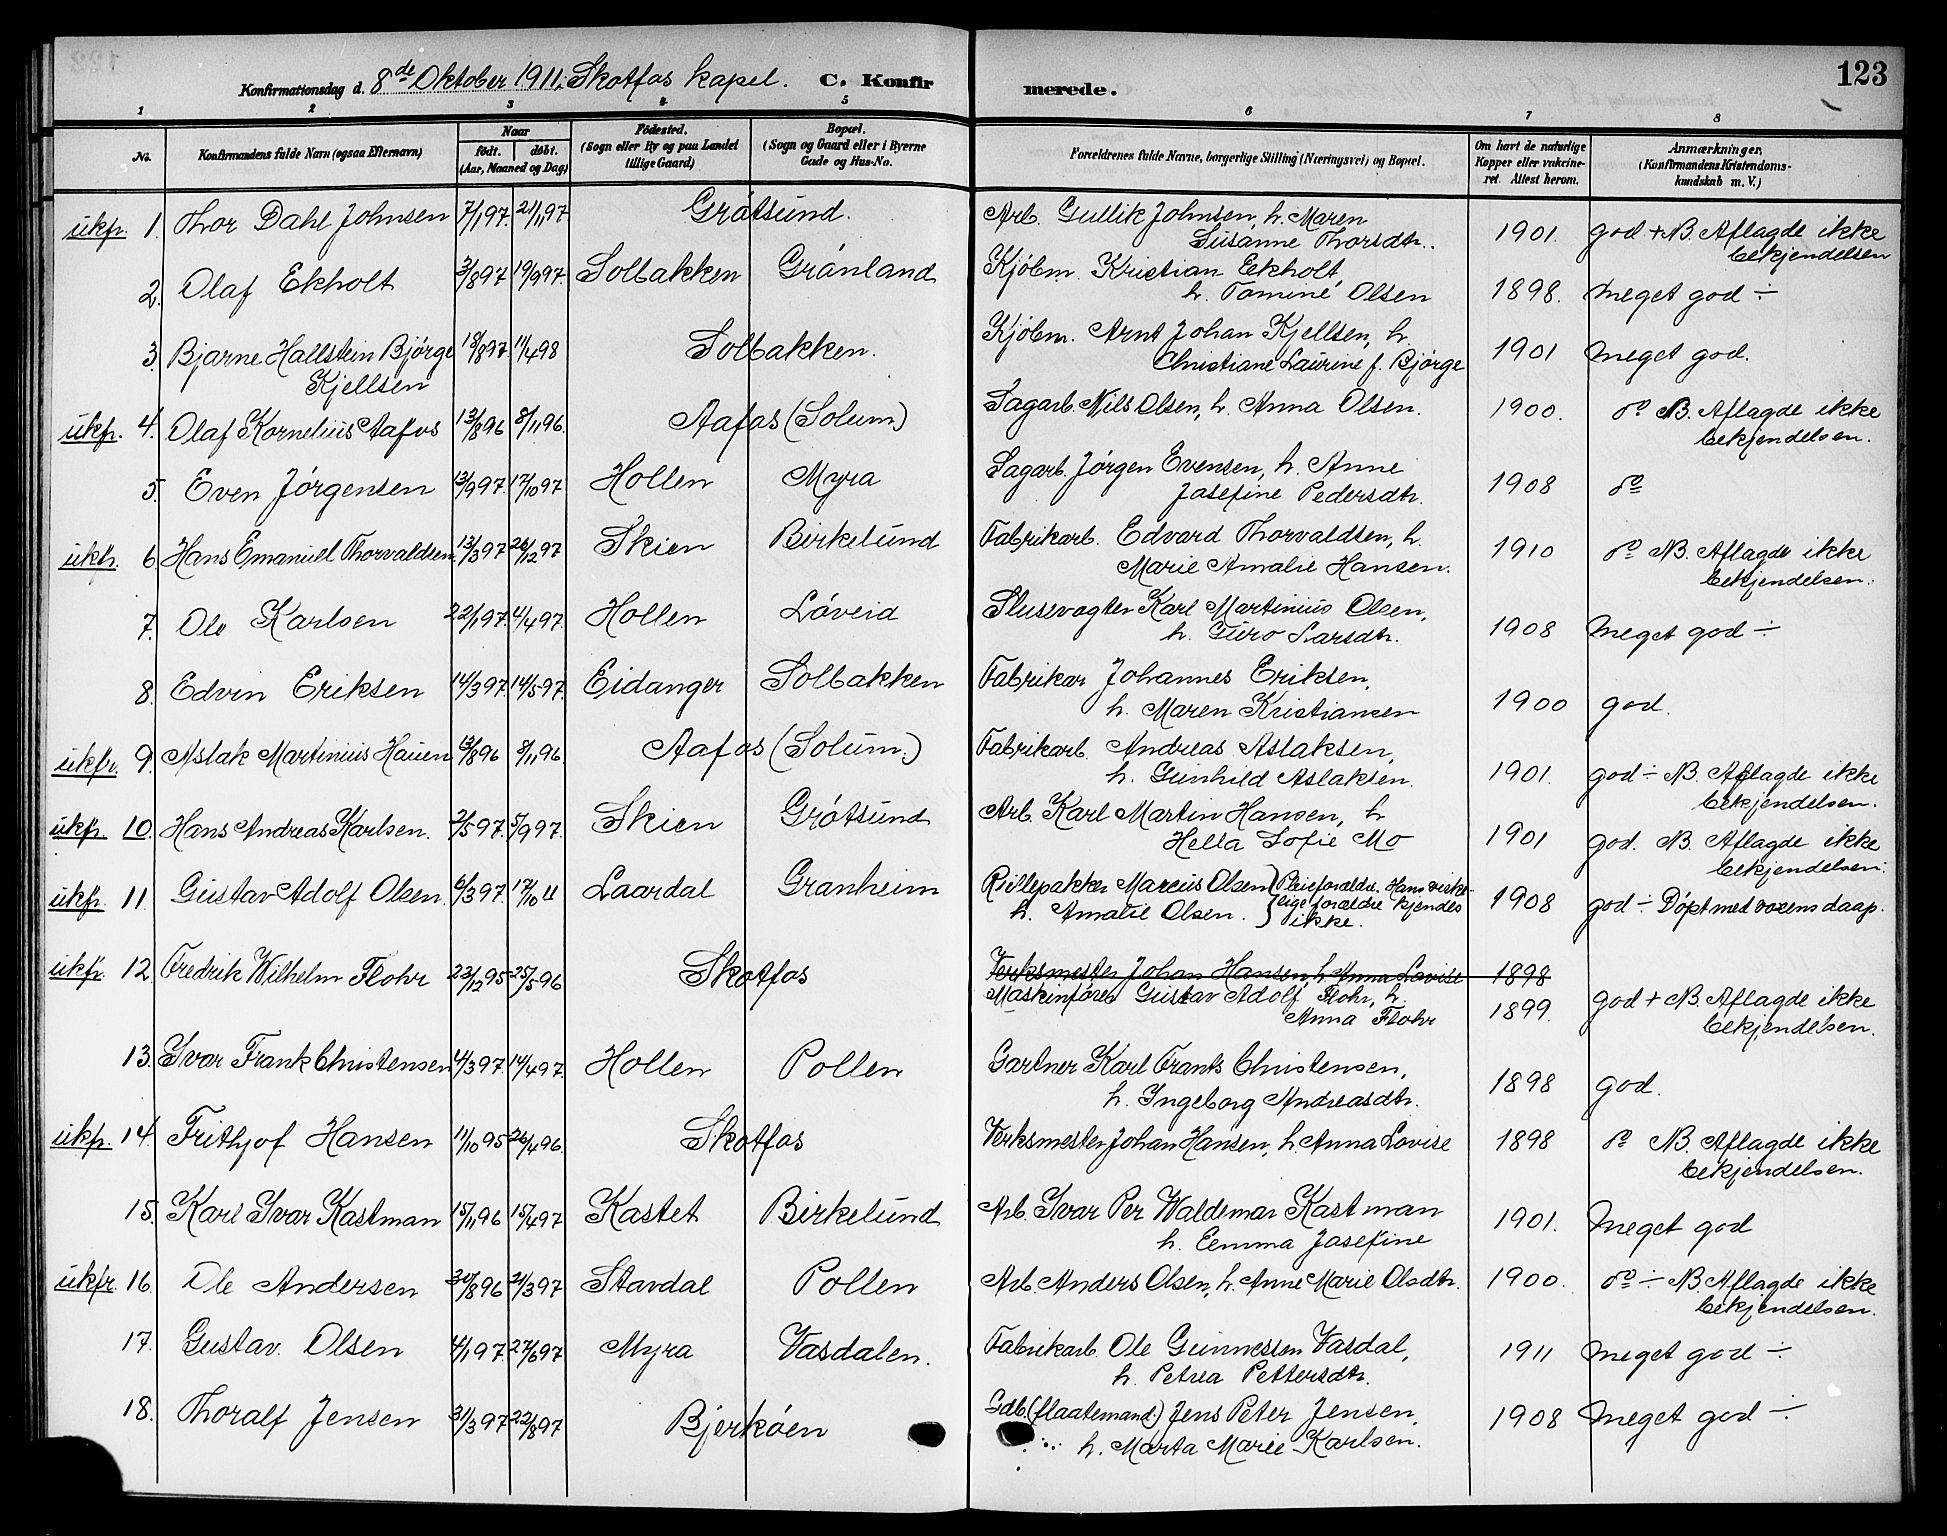 123
Konfirmationsdag d. 8de Oktober 1911. Skotfos kapel. C. Konfirmerede.
1 2 3 4 5 6 7 8
No. Konfirmandens fulde Navn (ogsaa Efternavn) Naar født. døbt. (Aar, Maaned og Dag) Fødested. (Sogn eller By og paa Landet tillige Gaard) Bopæl. (Sogn og Gaard eller i Byerne Gade og Hus-No. Forældrenes fulde Navne, borgerlige Stilling (Næringsvei) og Bopæl. Om havt de naturlige Kopper eller vaccineret. Attest herom. Anmærkninger, (Konfirmandens Kristendomskundskab m. V.)
ukfr. 1. Thor Dahl Johnsen 7/1 97. 21/1 97 Grøtsund. Arb. Gullik Johnsen, h. Maren 1901. god + NB. Aflagde ikke
Susanne Thorsdtr. bekjendelsen
2. Olaf Ekholt 3/8 97 19/9 97. Solbakken Grønland Kjøbm. Kristian Eekholt 1898. meget god ÷
h. Tominé Olsen
3. Bjarne Hallstein Bjørge 18/8 97. 11/4 98 Solbakken. Kjøbm. Arnt Johan Kjellsen, h. 1901 meget god.
Kjellsen Christiane Laurine f. Bjørge
ukfr. 4. Olaf Kornelius Aafos 13/8 96 8/11 96. Aafos (Solum) Sagarb. Nils Olsen, h. Anna Olsen. 1900. do NB. Aflagde ikke
bekjendelsen.
5. Even Jørgensen 13/9 97. 17/10 97 Hollen Myra Sagarb. Jørgen Evensen, h. Anne 1908 do
Josefine Pedersdtr.
ukfr. 6 Hans Emanuel Thorvaldsen 13/3 97 26/12 97 Skien Birkelund Fabrikarb. Edvard Thorvaldsen, h. 1910 do NB. Aflagde ikke
Marie Amalie Hansen. bekjendelsen.
7. Ole Karlsen 22/1 97. 4/4 97. Hollen Løveid Slusevogter Karl Martinius Olsen, 1908 meget god ÷
h. Guro Larsdtr.
8. Edvin Eriksen 14/3 97. 14/5 97. Eidanger Solbakken Fabrikar Johannes Eriksen, 1900 god.
h. Maren Kristiansen
ukfr. 9. Aslak Martinius Hauen 13/8 96 8/11 96. Aafos (Solum.) Fabrikarb. Andreas Aslaksen, 1901. god ÷ NB. Aflagde ikke
h. Gunhild Aslaksen. bekjendelsen.
ukfr. 10. Hans Andreas Karlsen. 2/5 97. 5/9 97. Skien Grøtsund Arb. Karl Martin Hansen, h 1901 god. NB. Aflagde ikke
Hella Sofie Mo bekjendelsen.
ukfr. 11. Gustav Adolf Olsen. 6/3 97. 17/10 11 Laardal Granheim Rullepakker Marcus Olsen } Pleieforældre. Hans virke- 1908 god ÷ Døpt med voxens daap.
h. Amalie Olsen. lige forældre kjendes
ikke.
ukfr. 12. Fredrik Wilhelm Flohr 23/12 95 25/5 96 Skotfos Verksmester Johan Hansen, h. Anna Lovise 1898
Maskinfører Gustav Adolf Flohr, h. 1899. god + NB. Aflagde ikke
Anna Flohr bekjendelsen.
13. Ivar Frank Christensen 4/3 97. 14/4 97. Hollen Pollen Gartner Karl Frants Christensen, 1898 god.
h. Ingeborg Andreasdtr.
ukfr. 14. Frithjof Hansen 11/10 95 26/4 96. Skotfos Verksmester Johan Hansen, h. Anna Lovise 1898 do NB. Aflagde ikke
bekjendelsen.
15. Karl Ivar Kastman 15/11 96 15/4 97 Kastet Birkelund Arb. Ivar Per Waldemar Kastman 1901. meget god
h. Eemma Josefine
ukfr. 16. Ole Andersen 30/8 96 21/3 97 Stavdal Pollen Arb. Anders Olsen, h. Anne Marie Olsdtr. 1900. do ÷ NB. Aflagde ikke
bekjendelsen.
17. Gustav Olsen 4/1 97. 27/6 97 Myra Vasdalen. Fabrikarb. Ole Gunnessen Vasdal, 1911 meget god ÷
h. Petrea Pettersdtr.
18. Thoralf Jensen 31/3 97 22/8 97 Bjerkøen Gdb. (flaatemand) Jens Peter Jensen, 1908 meget god ÷
h. Marta Marie Karlsen.